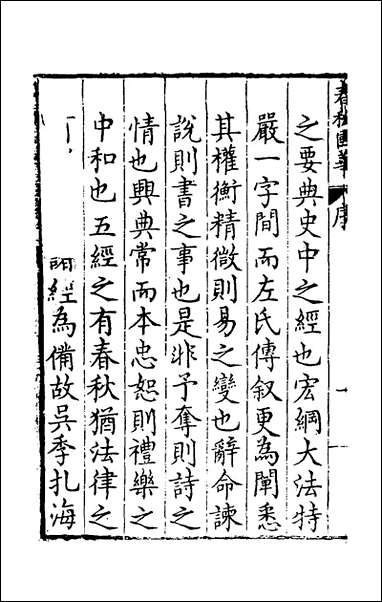 春秋國華 序
之要典史中之經也宏綱大法特
嚴一字間而左氏傳叙更為闡悉
其權衡精微則易之變也辭命諫
說則書之事也是非予奪則詩之
情也興典常而本忠恕則禮樂之
中和也五經之有春秋猶法律之
經為備故吳季扎海